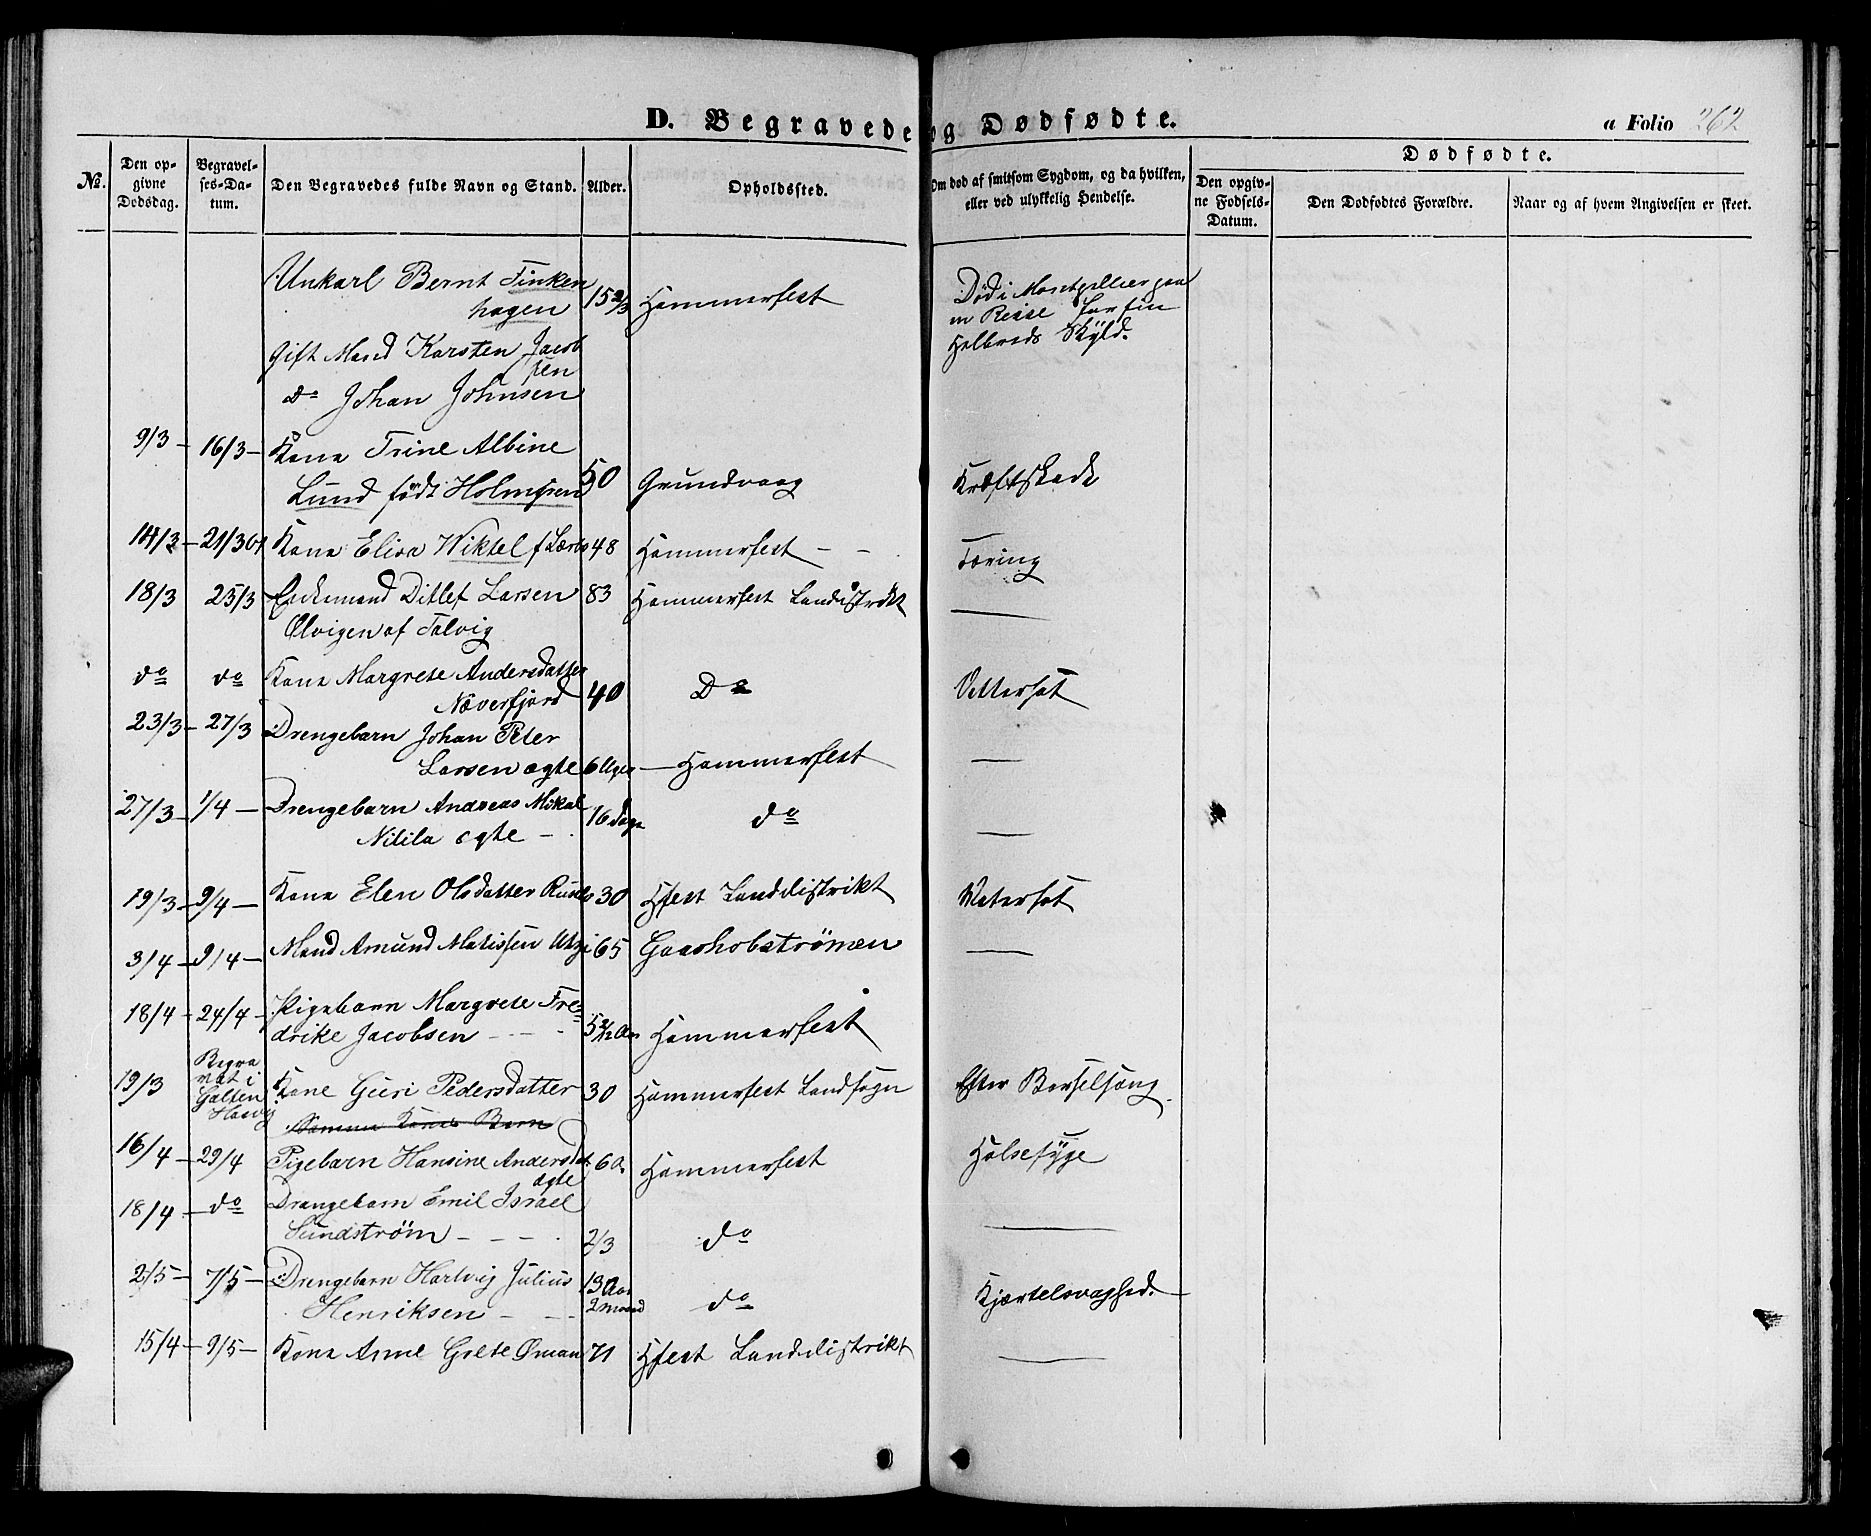 D. Begravede og Dødfødte.
a Folio 262
No.
Den opgivne Dødsdag.
Begravelses-Datum.
Den Begravedes fulde Navn og Stand.
Alder.
Opholdssted.
Om død af smitsom Sygdom, og da hvilken, eller ved ulykkelig Hendelse.
Dødfødte.
Den opgivne Fødsels-Datum.
Den Dødfødtes Forældre.
Naar og af hvem Angivelsen er skeet.
Unkarl Bernt Finken
hagen 15 2/3 Hammerfest
Død i Montpellier paa
en Reise for sin
Helbreds Skyld.
Gift Mand Karsten Jacob
sen
do Johan Johnsen
9/3 – 16/3 – Kona Trine Albine
Lund født Holmgren 50 Grundvaag Kræftskade
14/3 – 21/3 Kona Elisa Wiktel f. 48 Hammerfest – – Tæring
18/3 23/3 Enkemand Ditlef Larsen 83 Hammerfest Landistrikt —
Ølvigen af Talvig
do do Kona Margrete Andersdatter
Næverfjord 40 Do Vattersot
23/3 – 27/3 Drengebarn Johan Peter
Larsen ægte 6 Uger – Hammerfest —
27/3 – 1/4 – Drengebarn Andreas Mikal
Nilila ægte – 16 dage do —
19/3 – 9/4 – Kona Elen Olsdatter 30 Hfest Landdistrikt Vatersot
3/4 – 9/4 – Mand Amund Matissen 65 Gaashobstrømen —
18/4 – 24/4 – Pigebarn Margrete Fre-
drike Jacobsen – – – 5 Hammerfest
19/3 Begra
vet i
Galten
Hasvig Kone Guri Pedersdatter 30 Hammerfest Landsogn Efter Barselsæng
Samme Kones Barn
16/4 – 29/4 Pigebarn Hansine Andersdt. 6 a. Hammerfest Halsesyge
ægte
18/4 – do Drengebarn Emil Israel
Sundstrøm – – – 2/3 do —
2/5 – 7/5 – Drengebarn Hartvig Julius 13 Aar
Henriksen – – – 2 maaned do Kjærtelsvaghed.
15/4 – 9/5 – Kona Anne Grete Øman 71 Hfest Landdistrikt —